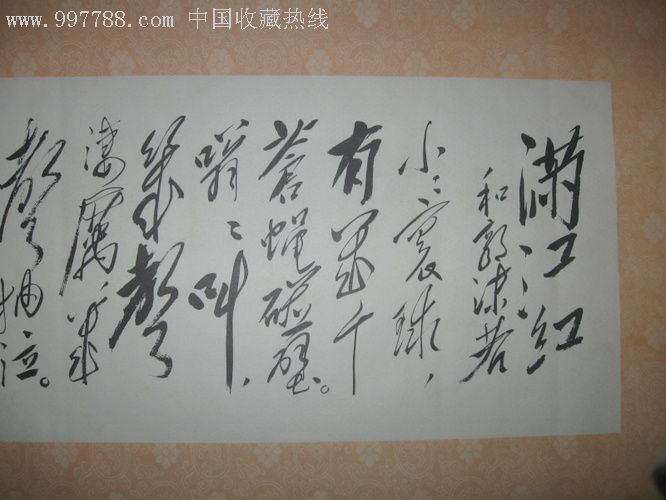 www.997788.com 中国收藏热线
满江红
和郭沫若
小々寰球，
有幾个
蒼蝇碰壁。
嗡々叫，
幾聲
凄厲幾
聲抽泣。